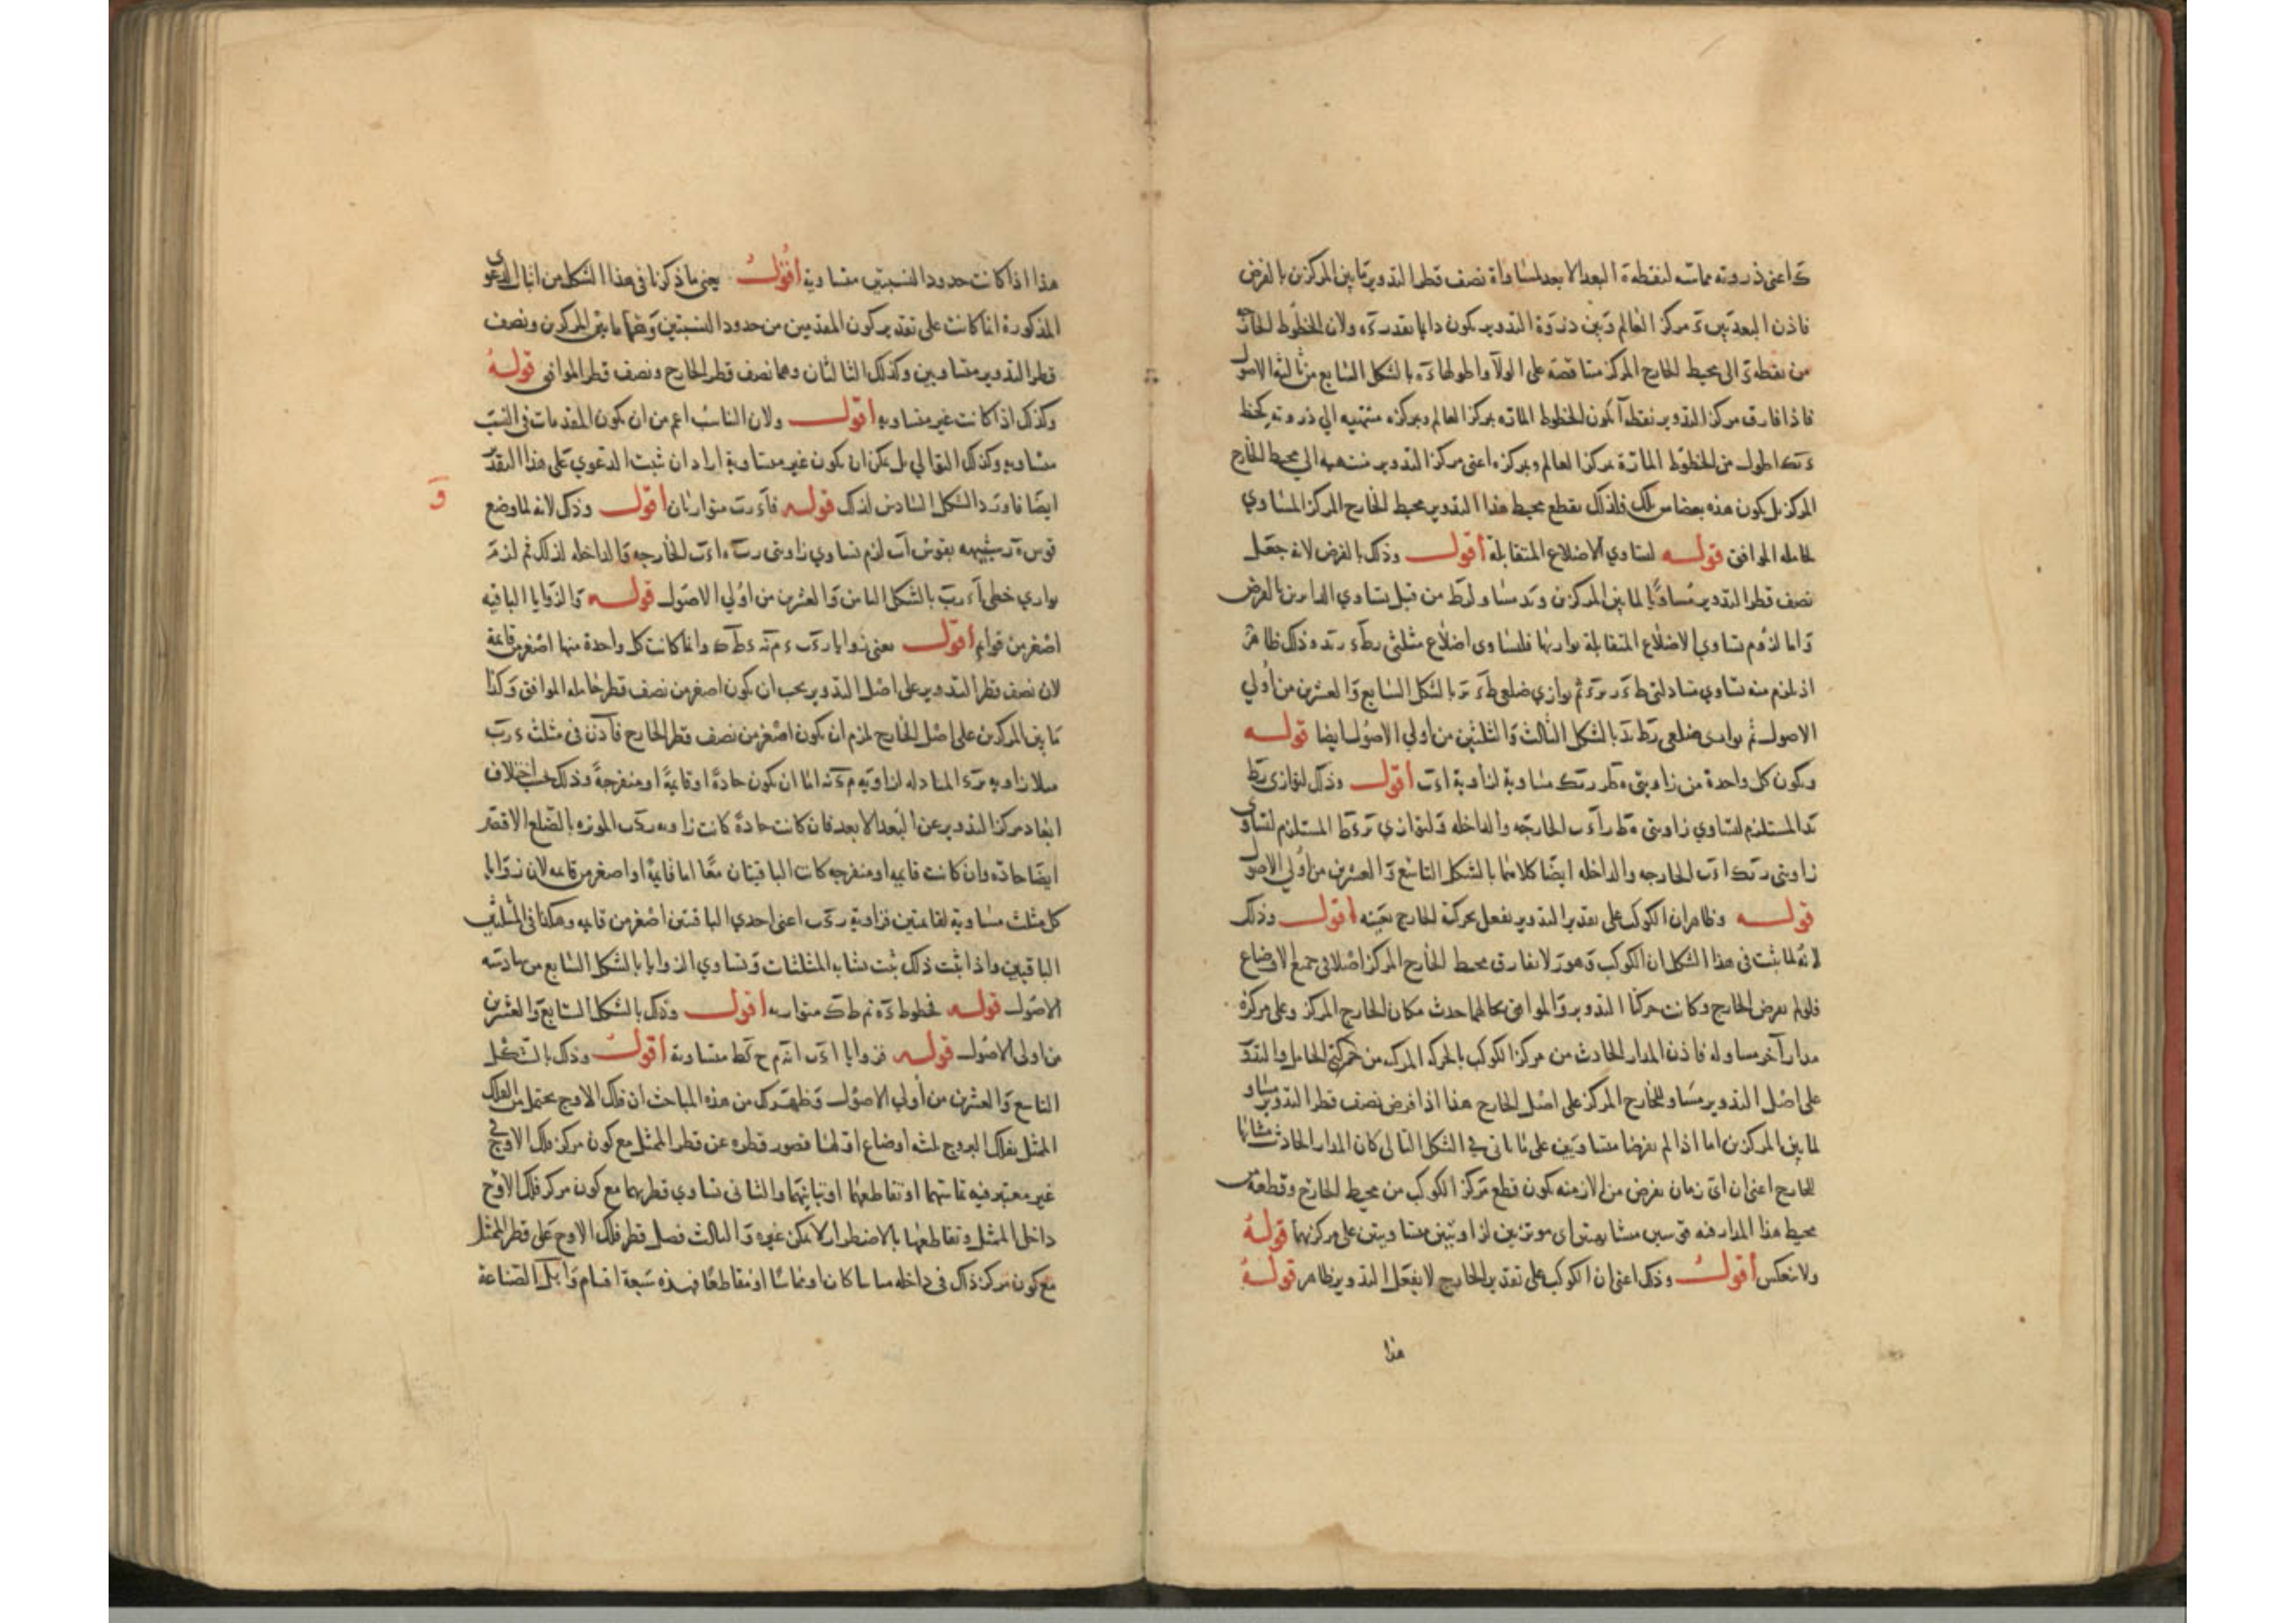 اعنى ذروته مماسه لنقطة ه البعد الابعد لمساواة نصف قطر التدوير ما بين المركزين بالفرض
فاذن البعد بين مركز العالم وبين ذروة التدوير يكون دايما بقدر ولان الخطوط الخارجة
من نقطة الى محيط الخارج المركز متناقصة على الولآ واطولها بالشكل السابع من ثالثة الاصول
فاذا فارق مركز التدوير نقطة آ يكون الخطوط المارة بمركز العالم وبمركزه منتهيه الي ذروته كخط
اطول من الخطوط المارة بمركز العالم وبمركزه اعنى مركز التدوير منتهيه الي محيط الخارج
المركز بل يكون هذه بعضا من تلك فلذلك يقطع محيط هذا التدوير محيط الخارج المركز المساوي
لحامله الموافق قوله لتساوي الاضلاع المتقابلة أقول وذلك بالفرض لانه جعل
نصف قطر التدوير مساويا لما بين المركزين من قبل تساوي بالفرض
واما لزوم تساوي الاضلاع المتقابلة توازيها فلتساوى اضلاع مثلثى وذلك ظاهر
اذ يلزم منه تساوي متبادلتى ثم توازي ضلعى بالشكل السابع والعشرين من أولي
الاصول ثم توازى ضلعى بالشكل الثالث والثلثين من أولي الاصول ايضا قوله
ويكون كل واحدة من زاويتى مساوية لزاوية أقول وذلك لتوازى
المستلزم لتساوي زاويتى الخارجه والداخله ولتوازي المستلزم لتساوى
زاويتى الخارجه والداخله ايضا كلاهما بالشكل التاسع والعشرين من أولي الاصول
قوله وظاهر ان الكوكب على تقدير التدوير يفعل بحركة الخارج بعينه أقول وذلك
لانه لما ثبت فى هذا الشكل ان الكوكب وهو لا يفارق محيط الخارج المركز اصلا فى جميع الاوضاع
فلو لم يفرض الخارج وكانت حركتا التدوير والموافق بحالهما حدث مكان الخارج المركز وعلى مركزه
مدار آخر مساو له فاذن المدار الحادث من مركز الكوكب بالحركه المركبه من حركتى الحامل والتدوير
على اصل التدوير مساو للخارج المركز على اصل الخارج هذا اذا فرض نصف قطر التدوير مساو
لما بين المركزين اما اذا لم يفرضا متساويين على ما ياتى فى الشكل التالى كان المدار الحادث مشابها
للخارج اعنى ان اى زمان يفرض من الازمنه يكون قطع مركز الكوكب من محيط الخارج وقطعه من
محيط هذا المدار فيه قوسين متشابهتين اى موترتين لزاويتين متساويتين على مركزيهما قوله
ولا ينعكس أقول وذلك اعنى ان الكوكب على تقدير الخارج لا يفعل التدوير ظاهر قوله
هذا
هذا اذا كانت حدود النسبتين متساوية أقول يعنى ما ذكرنا فى هذا الشكل من اثبات الدعوى
المذكورة انما كانت على تقدير كون المقدمين من حدود النسبتين وهما ما بين المركزين ونصف
قطر التدوير متساويين وكذلك التاليان وهما نصف قطر الخارج ونصف قطر الموافق قوله
وكذلك اذا كانت غير متساويه أقول ولان التناسب اعم من ان يكون المقدمات فى النسب
متساويه وكذلك التوالي بل يمكن ان يكون غير متساوية اراد ان يثبت الدعوي على هذا التقدير
ايضا فاورد الشكل السادس لذلك قوله متوازيان أقول وذلك لانه لما وضع
و
قوس شبيهه بقوس آب لزم تساوي زاويتى الخارجه والداخله لذلك ثم لزم
توازي خطى بالشكل الثامن والعشرين من أولي الاصول قوله والزوايا الباقيه
اصغر من قوايم أقول يعنى زوايا وانما كانت كل واحدة منها اصغر من قايمة
لان نصف قطر التدوير على اصل التدوير يجب ان يكون اصغر من نصف قطر حامله الموافق وكذا
ما بين المركزين على اصل الخارج لزم ان يكون اصغر من نصف قطر الخارج فاذن فى مثلث
مثلا زاويه المبادله لزاويه اما ان يكون حادة او قايمة او منفرجة وذلك بحسب اختلاف
ابعاد مركز التدوير عن البعد الابعد فان كانت حادة كانت زاويه الموتره بالضلع الاقصر
ايضا حاده وان كانت قايمه او منفرجه كانت الباقيتان معا اما قايمة او اصغر من قايمه لان زوايا
كل مثلث مساوية لقايمتين فزاوية اعنى احدي الباقيتين اصغر من قايمه وهكذا فى المثلثين
الباقيين واذا ثبت ذلك ثبت تشابه المثلثات وتساوي الزوايا بالشكل السابع من سادسه
الاصول قوله فخطوط متوازيه أقول وذلك بالشكل السابع والعشرين
من اولى الاصول قوله فزوايا متساوية أقول وذلك بالشكل
التاسع والعشرين من أولي الاصول وظهر لك من هذه المباحث ان فلك الاوج يحتمل من الفلك
الممثل بفلك البروج ثلثه أوضاع اولها قصور قطره عن قطر الممثل مع كون مركز فلك الاوج
غير معتبر فيه تماسهما او تقاطعهما او تباينهما والثانى تساوي قطريهما مع كون مركز فلك الاوج
داخل الممثل وتقاطعهما بالاضطرار لا يمكن غيره والثالث فضل قطر فلك الاوج على قطر الممثل
مع كون مركز ذاك فى داخله مباينا كان او مماسا او متقاطعا فهذه سبعة اقسام واهل الصناعة